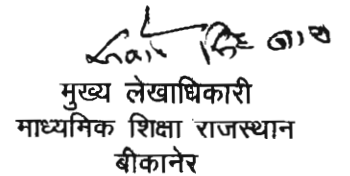 मुख्य लेखाधिकारी
माध्यमिक शिक्षा राजस्थान
बीकानेर